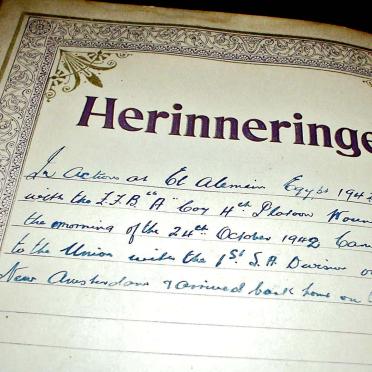 Herinneringe
In action at El Alemein Egypt 194
with the F.F.B "A" Coy 4th Platoon Woun
the morning of the 24th October 1942 Cam
to the Union with the 1st S.A. Division o
New Amsterdam & arrived back home on